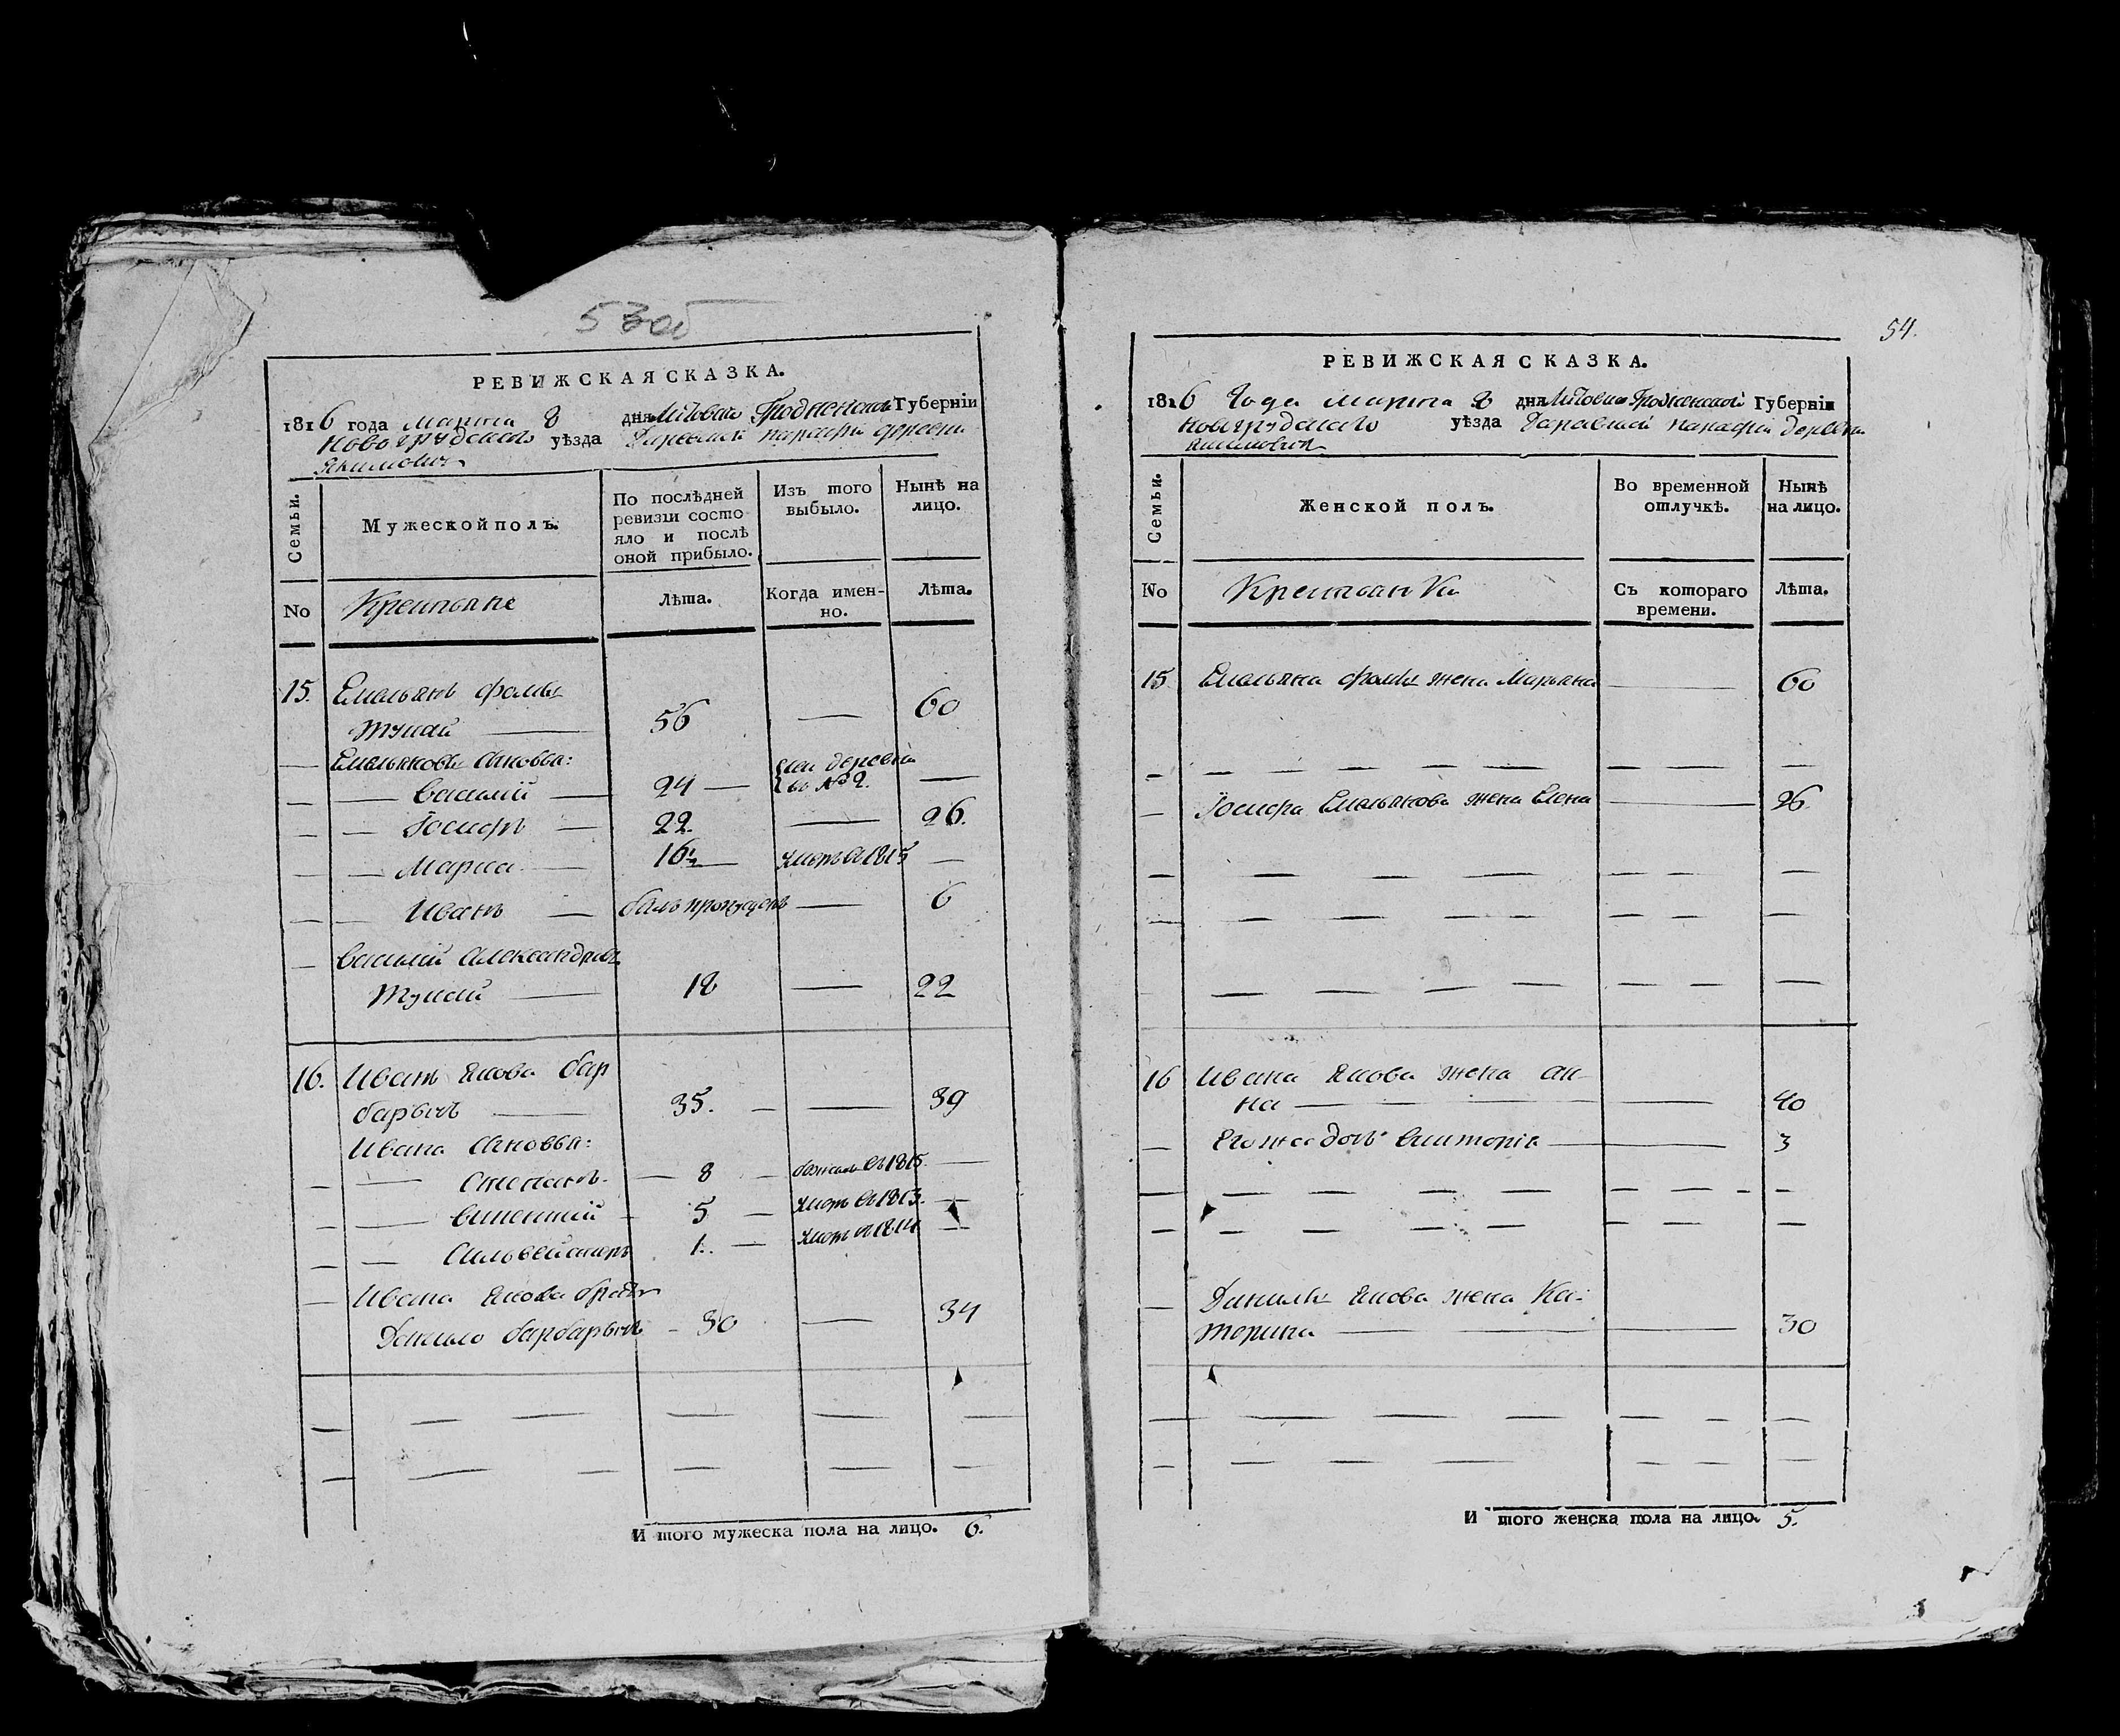 53об
РЕВИЖСКАЯ СКАЗКА.
1816 года марта 8 дня Литовско Гродненской Губерніи
Новогрудскаго уѣзда парафіи деревни
Якимович
Семьи.
Мужеской полъ.
По послѣдней ревизіи состояло и послѣ оной прибыло.
Изъ того выбыло.
Нынѣ на лицо.
No
Крестьяне
Лѣта.
Когда именно.
Лѣта.
15. Емельянъ Фомы
56 — 60
— Емельяновы сыновья:
— — Василій — 24 — деревни №2. —
— — Іосифъ — 22. — 26.
— 16½ — умеръ въ 1815 —
— — Иванъ — былъ пропущенъ — 6
— Василій Александровъ
18 — 22
16. Иванъ Якова Бар
барычъ — 35. — — 39
Ивана сыновья:
— — Степанъ. — 8 — бежалъ въ 1815. —
— — Викентій — 5 — умеръ въ 1813. —
— — Сильвестръ 1. — умеръ въ 1814 —
— Ивана Якова братъ
Данило Барбарычъ — 30 — 34
И того мужеска пола на лицо. 6.
54.
РЕВИЖСКАЯ СКАЗКА.
1816 Года марта 8 дня Литовско Гродненской Губерніи
Новогрудскаго уѣзда парафіи деревни
Якимович
Семьи.
Женской полъ.
Во временной отлучкѣ.
Нынѣ на лицо.
No
Крестьянки
Съ котораго времени.
Лѣта.
15 Емельяна Фомы жена Марьяна — 60
— Іосифа Емельянова жена Елена — 26
16 Ивана Якова жена Ан-
на — — 40
— Его же дочь Викторія — — 3
— Данилы Якова жена Ка-
терина — — 30
И того женска пола на лицо. 5.